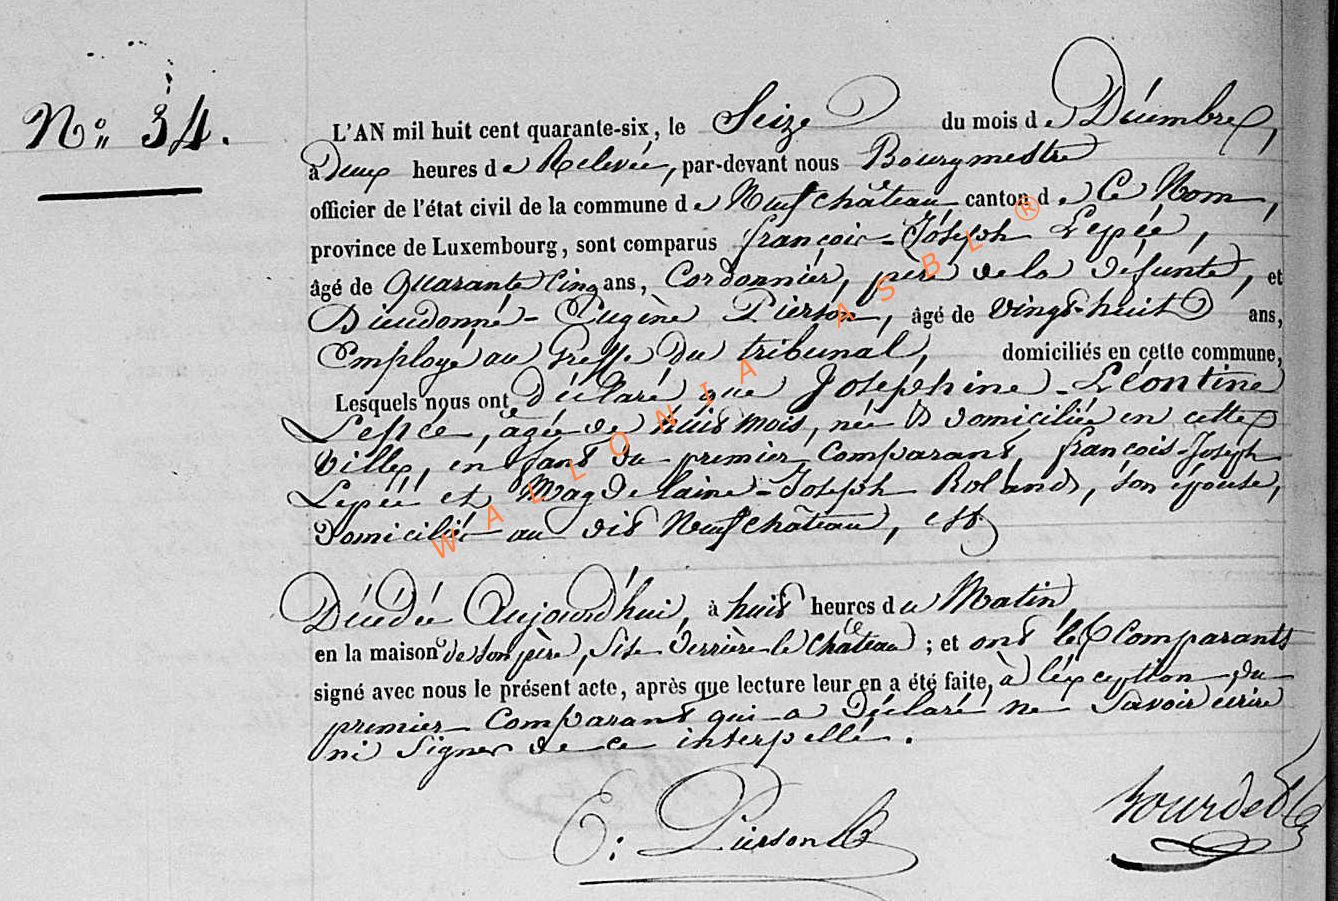 N° 34.
L'AN mil huit cent quarante-six, le Seize du mois de Décembre,
à Deux heures de Relevée, par-devant nous Bourgmestre
officier de l'état civil de la commune de Neufchâteau canton de Ce Nom,
province de Luxembourg, sont comparus françois-Joseph Lepée,
âgé de Quarante Cinq ans, Cordonnier, père de la défunte, et
Dieudonné-Eugène Pierson, âgé de vingt-huit ans,
Employé au Greffe du tribunal, domiciliés en cette commune,
Lesquels nous ont déclaré que Joséphine-Léontine
Lepée, agée de huit mois, née & domiciliée en cette
Ville, enfant du premier Comparant françois-Joseph
Lepée et Magdelaine-Joseph Roland, son épouse,
Domicilié au dit Neufchâteau, est
Décédée Aujourd'hui, à huit heures du Matin
en la maison de son père, Sise derrière le Château; et ont les Comparants
signé avec nous le présent acte, après que lecture leur en a été faite, à l'exception du
premier Comparant qui a Déclaré ne Savoir écrire
ni Signer de ce interpellé.
E: Pierson
WALLONIA ASBL ®